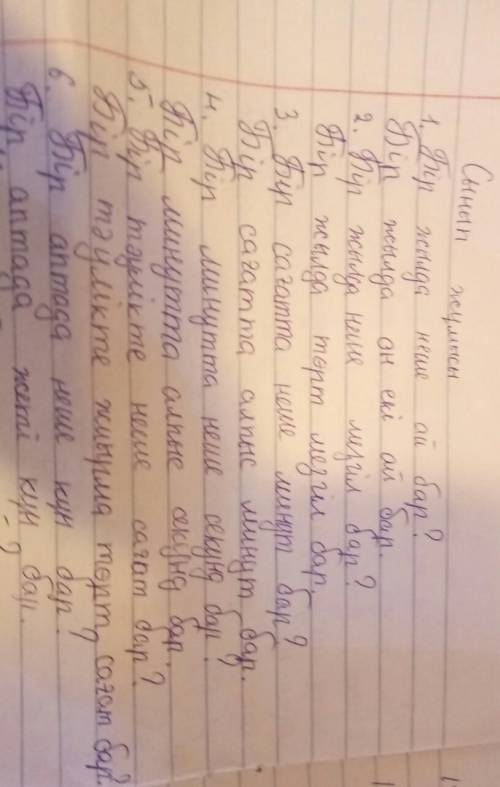 Сынып жұмысы
1. Бір жылда неше ай бар?
Бір жылда он екі ай бар.
2. Бір жылда неше мезгіл бар?
Бір жылда төрт мезгіл бар.
3. Бір сағатта неше минут бар?
Бір сағатта алпыс минут бар.
4. Бір минутта неше секунд бар?
Бір минутта алпыс секунд бар.
5. Бір тәулікте неше сағат бар?
Бір тәулікте жиырма төрт сағат бар?
6. Бір аптада неше күн бар?
Бір аптада жеті күн бар.